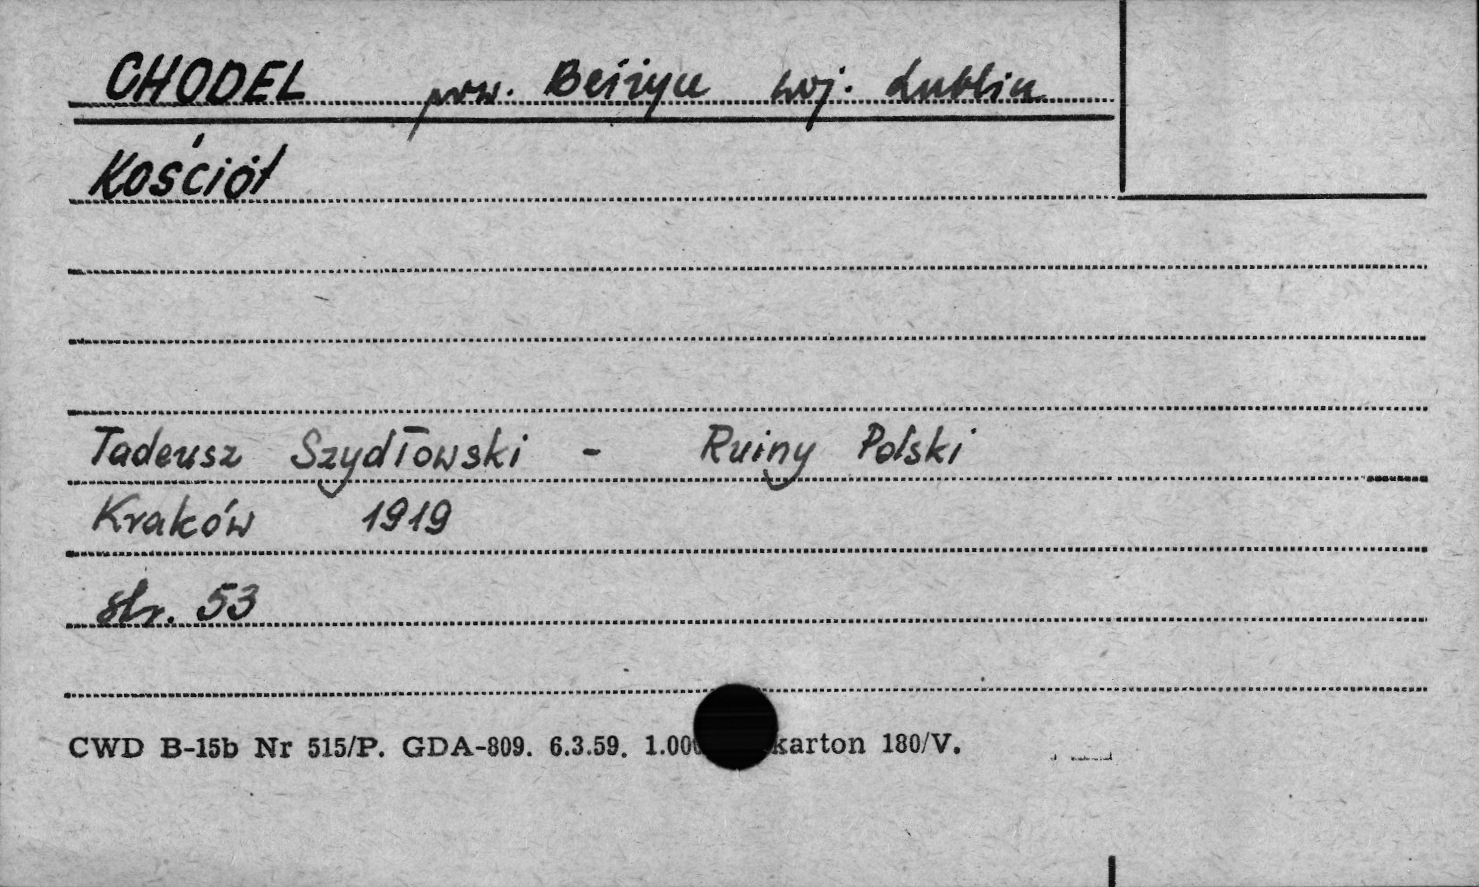 CHODEL pow. Bełżyce woj. Lublin
Kościół
Tadeusz Szydłowski - Ruiny Polski
Kraków 1919
str. 53
CWD B-15b Nr 515/P. GDA-809. 6.3.59. 1.000 karton 180/V.